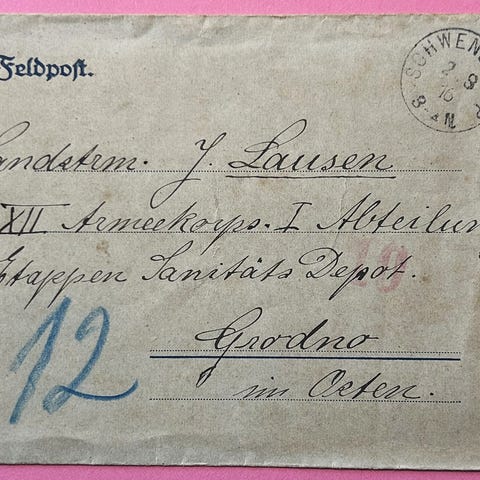 Feldpost.
SCHWEN
2 8
16
8-9 N.
Landstrm. J. Lausen
XII Armeekorps. I Abteilun
Etappen Sanitäts Depot.
19
Grodno
im Osten.
12